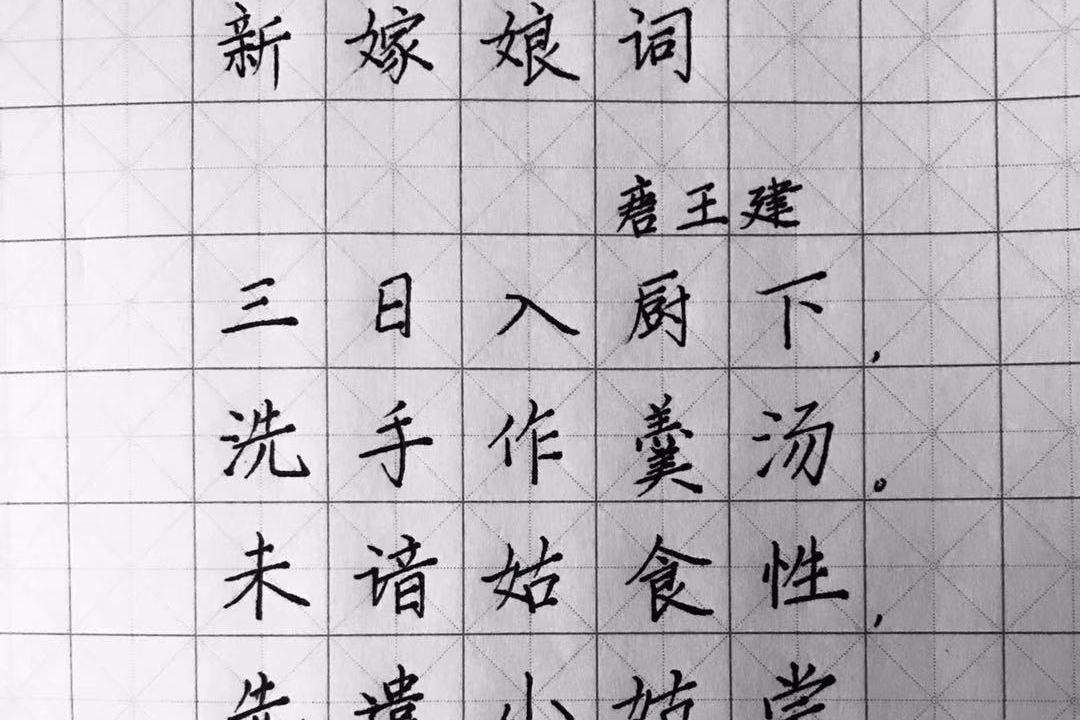 新嫁娘词
唐王建
三日入厨下,
洗手作羹汤。
未谙姑食性,
先遣小姑尝